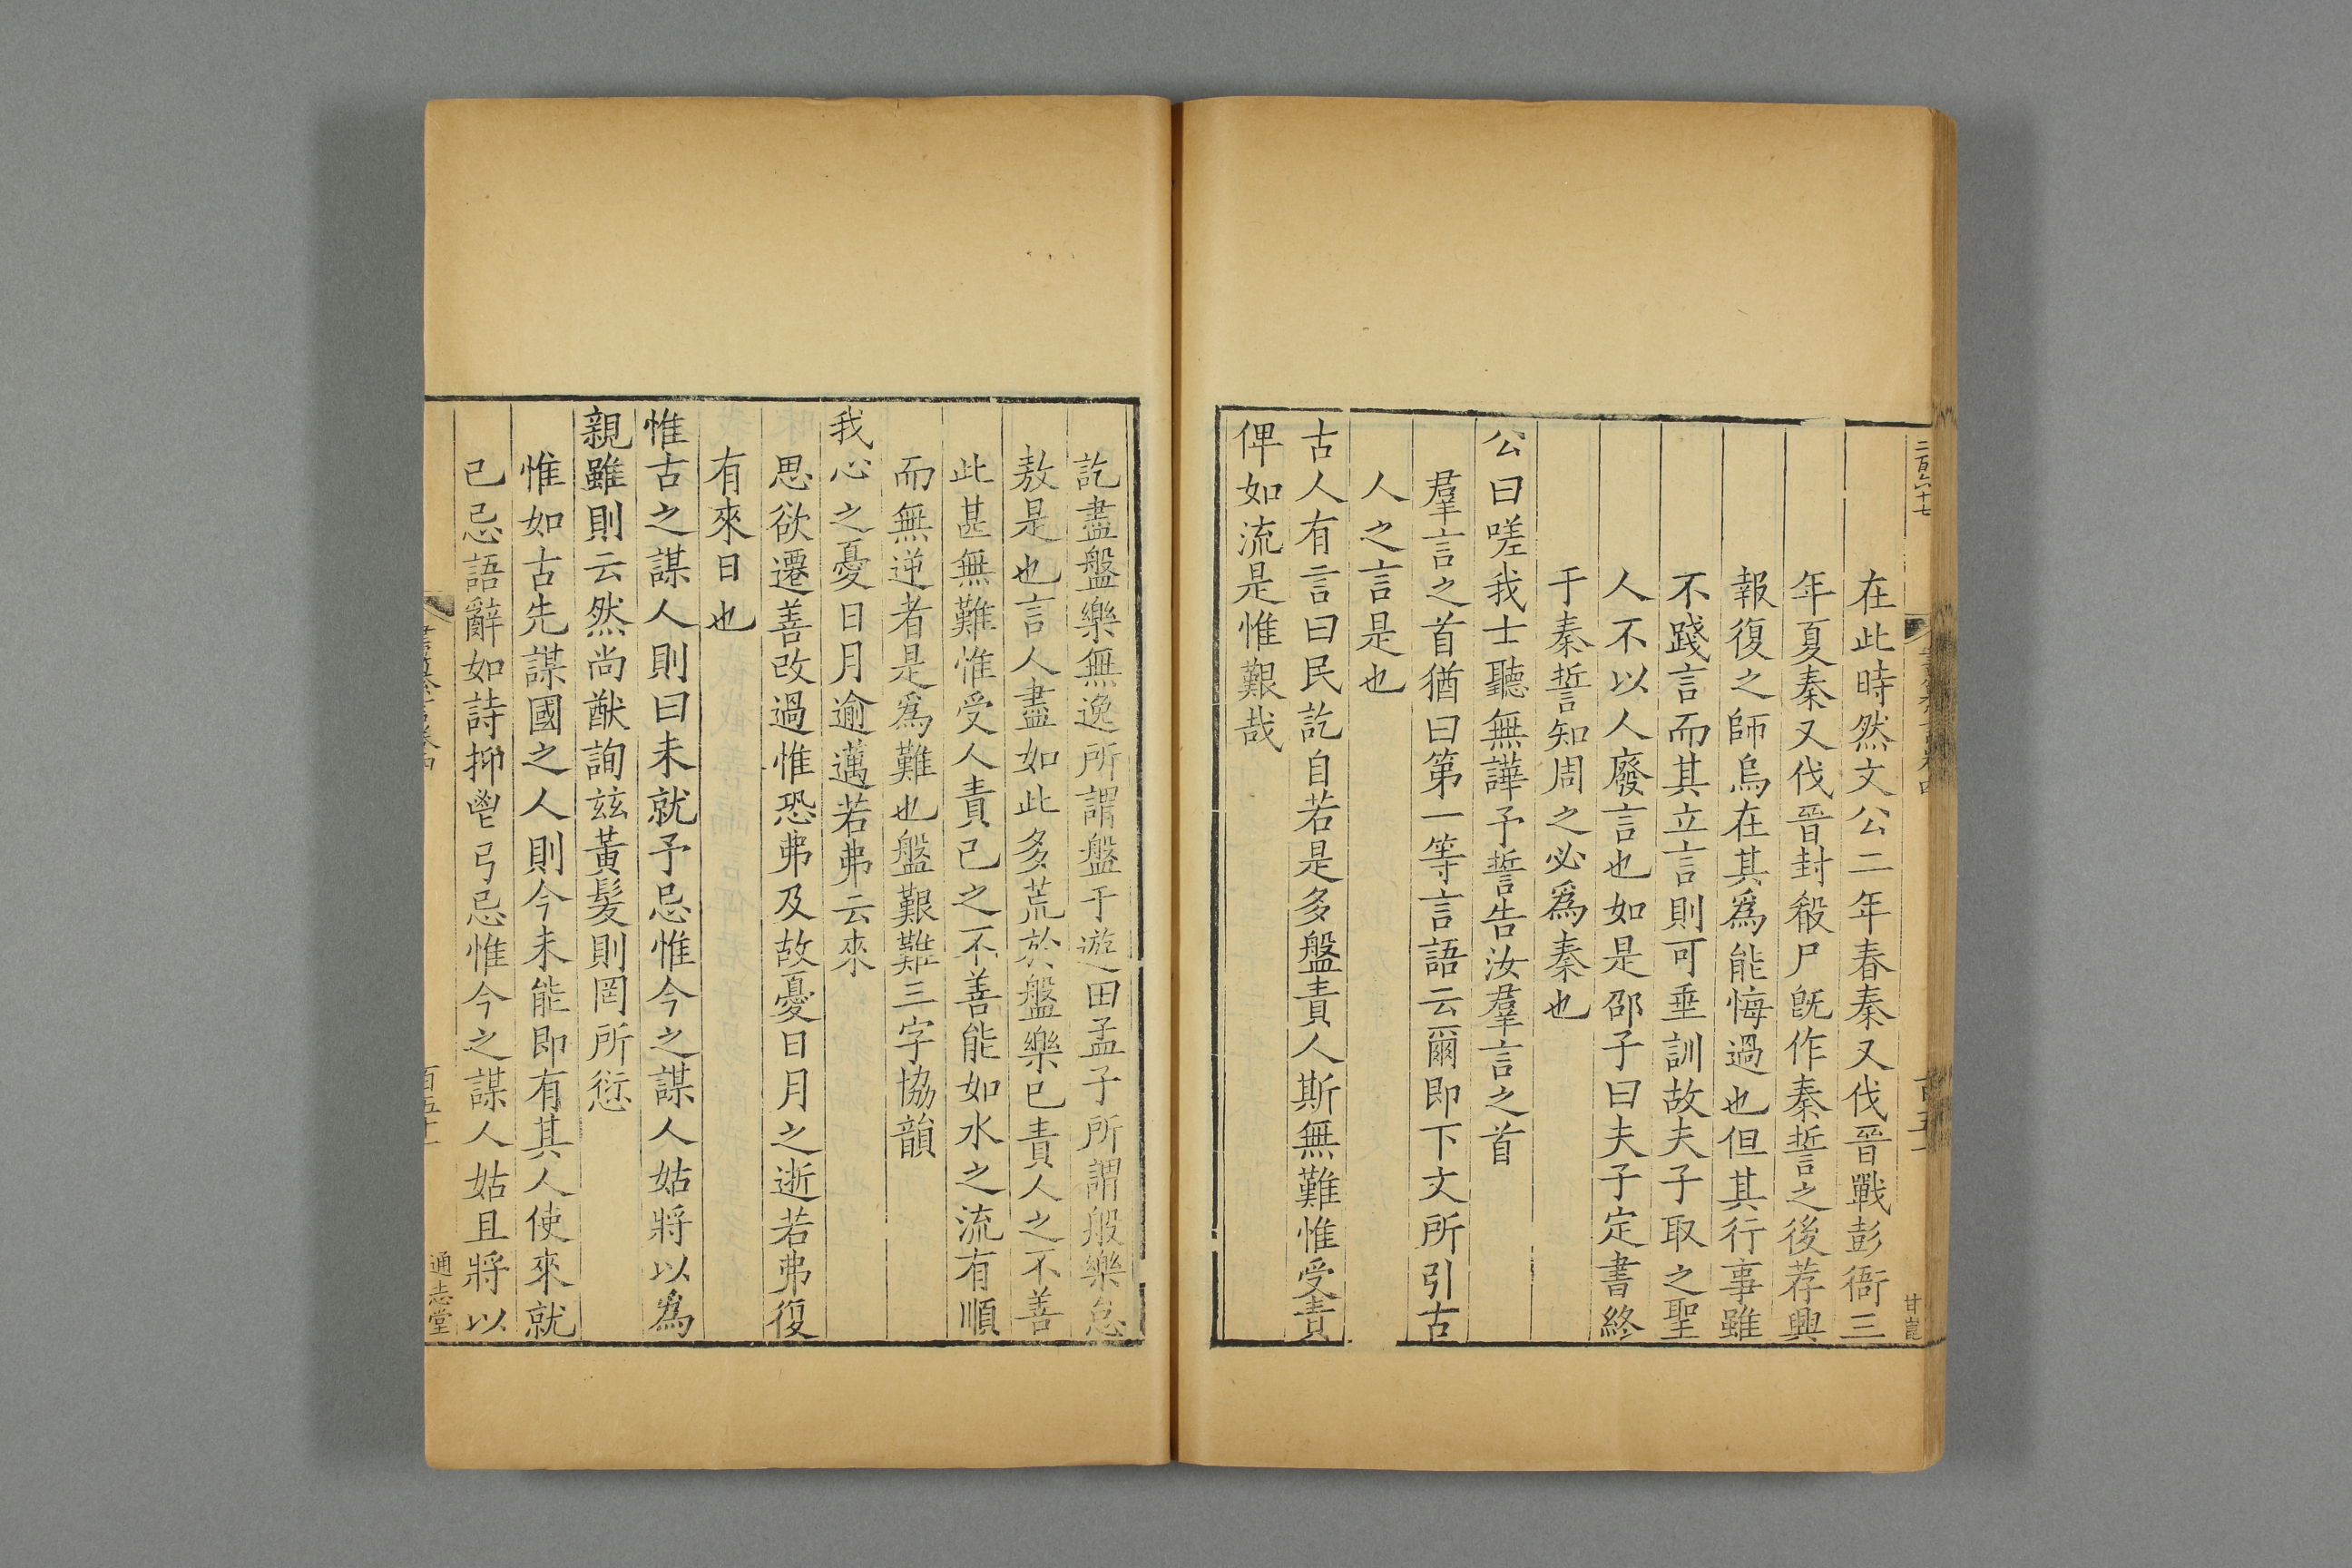 二百六十七
在此時然文公二年春秦又伐晉戰彭衙三
年夏秦又伐晉封殽尸旣作秦誓之後荐興
報復之師烏在其爲能悔過也但其行事雖
不踐言而其立言則可垂訓故夫子取之聖
人不以人廢言也如是邵子曰夫子定書終
于秦誓知周之必爲秦也
公曰嗟我士聽無譁予誓告汝羣言之首
羣言之首猶曰第一等言語云爾即下文所引古
人之言是也
古人有言曰民訖自若是多盤責人斯無難惟受責
俾如流是惟艱哉
訖盡盤樂無逸所謂盤于遊田孟子所謂般樂怠
敖是也言人盡如此多荒於盤樂已責人之不善
此甚無難惟受人責己之不善能如水之流有順
而無逆者是爲難也盤艱難三字協韻
我心之憂日月逾邁若弗云來
思欲遷善改過惟恐弗及故憂日月之逝若弗復
有來日也
惟古之謀人則曰未就予忌惟今之謀人姑將以爲
親雖則云然尚猷詢玆黃髮則罔所愆
惟如古先謀國之人則今未能即有其人使來就
己忌語辭如詩抑鬯弓忌惟今之謀人姑且將以
通志堂